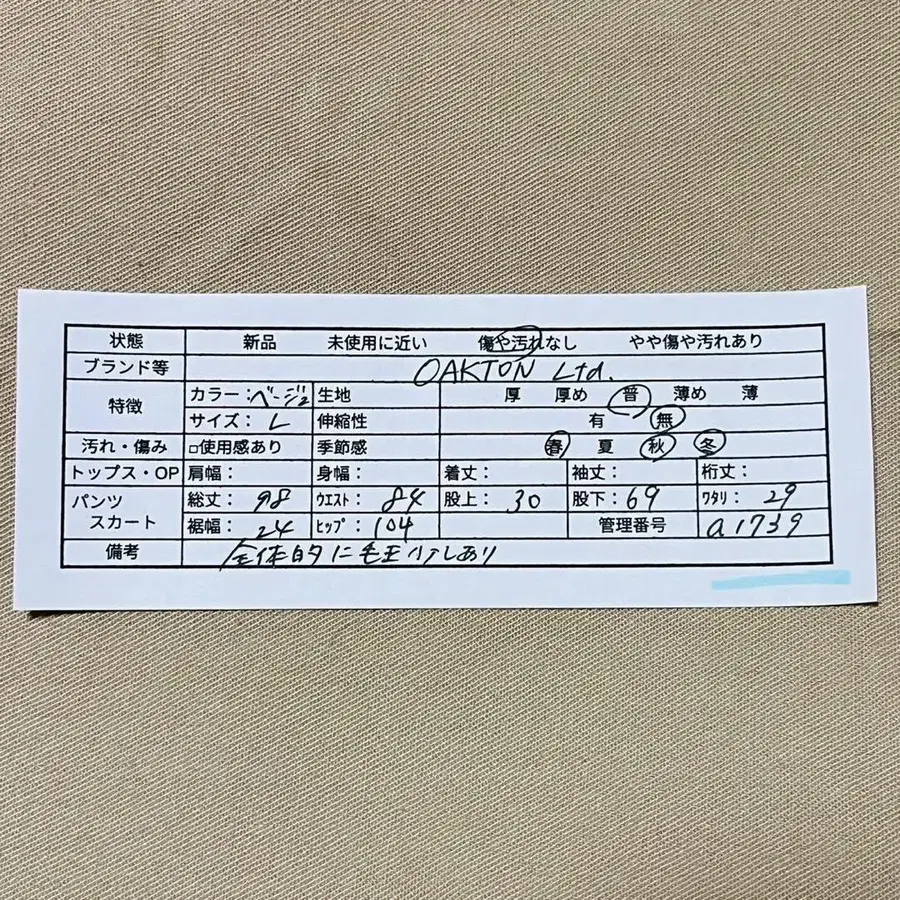 状態 新品 未使用に近い 傷や汚れなし やや傷や汚れあり
ブランド等 OAKTON Ltd.
特徴 カラー：ベージュ 生地 厚 厚め 普 薄め 薄
サイズ：L 伸縮性 有 無
汚れ・傷み □使用感あり 季節感 春 夏 秋 冬
トップス・OP 肩幅： 身幅： 着丈： 袖丈： 裄丈：
パンツ 総丈：98 ｳｴｽﾄ：84 股上：30 股下：69 ﾜﾀﾘ：29
スカート 裾幅：24 ﾋｯﾌﾟ：104 管理番号 a1739
備考 全体的に毛玉少しあり